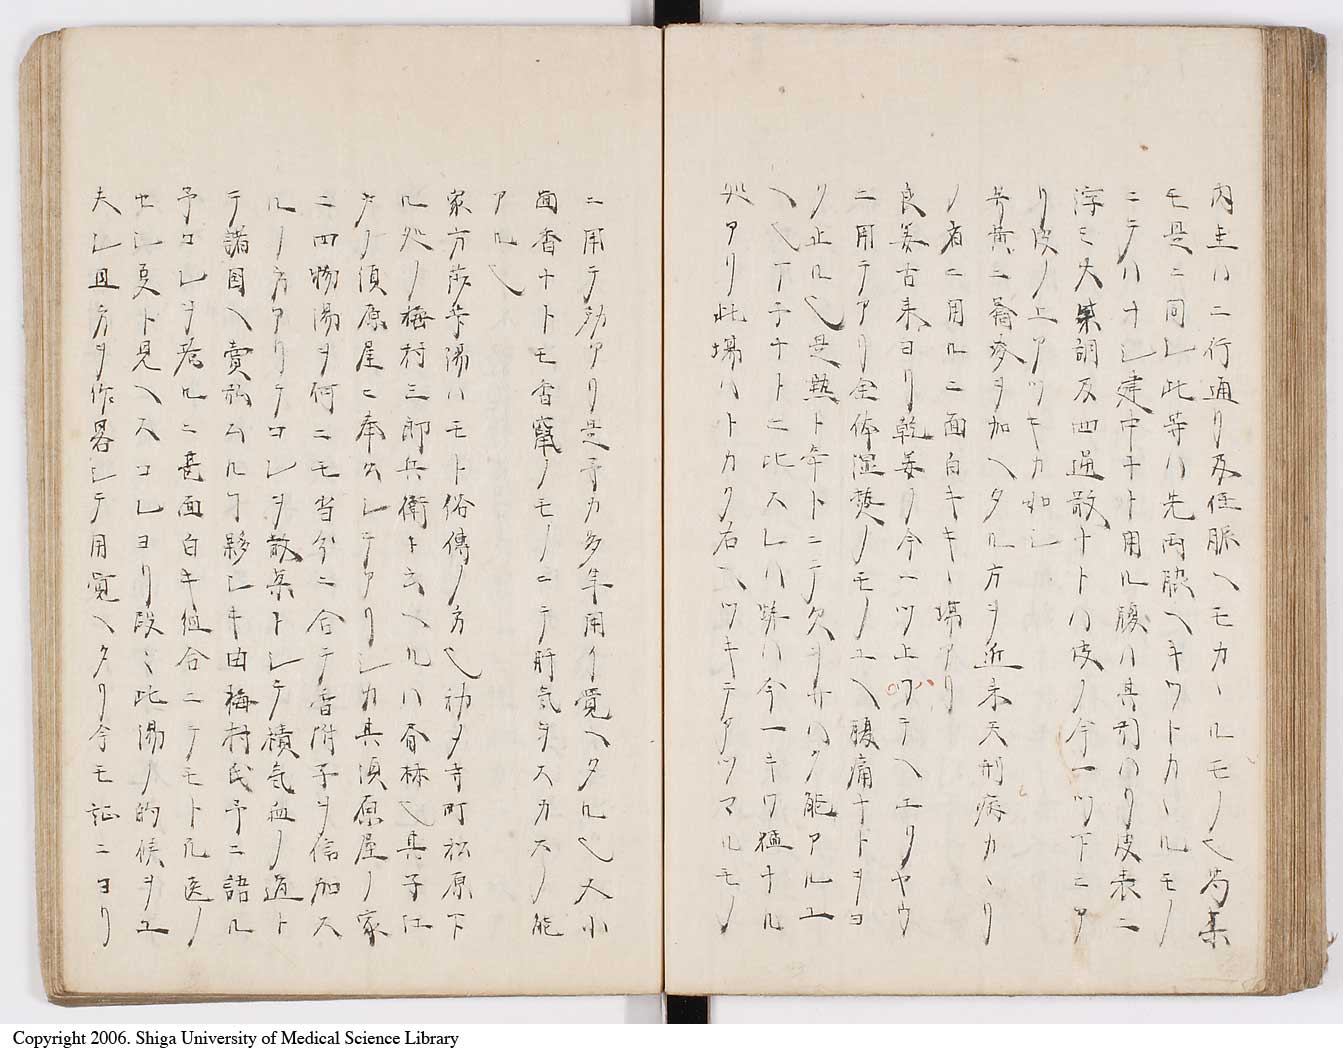 内圭ハ二行通リ及任脈ヘモカヽルモノ也芍薬
モ是ニ同シ此等ハ先両脇ヘキツトカヽルモノ
ニテハナシ建中ナト用ル腹ハ其引ハリ皮表ニ
浮ミ大柴調及四逆散ナトハ皮ノ今一ツ下ニア
リ皮ノ上アツキカ如シ
芩黄ニ喬麦ヲ加ヘタル方ヲ近来天刑病カヽリ
ノ者ニ用ルニ面白キキヽ場アリ
良姜古来ヨリ乾姜ク今一ツ上ワテヘエリヤウ
ニ用テアリ全体湿熱ノモノユヘ腹痛ナトヲヨ
ク止ル也是熱ト辛トニテ欠ヲサハク能アルユ
ヘ也丁子ナトニ比スレハ ハ今一キワ猛ナル
処アリ此場ハトカク右ヘツキテアツマルモノ
ニ用テ効アリ是予カ多年用イ覚ヘタル也大小
茴香ナトモ香竄ノモノニテ肝気ヲスカスノ能
アル也
家方莎芩湯ハモト俗傳ノ方也初メ寺町松原下
ル処ノ梅村三郎兵衛ト云ヘルハ香林也其子江
戸ノ須原屋ニ奉公シテアリシカ其須原屋ノ家
ニ四物湯ヲ何ニモ当分ニ合テ香附子ヲ倍加ス
ルノ方アリテコレヲ散薬トシテ積気血ノ道ト
テ諸国ヘ賣弘ムルヿ夥シキ由梅村氏予ニ語ル
予コレヲ考ルニ甚面白キ組合ニテモト凡医ノ
セシ夏ト見ヘスコレヨリ段々此湯ノ的候ヲユ
夫シ且方ヲ作畧シテ用覚ヘタリ今モ証ニヨリ
Copyright 2006. Shiga University of Medical Science Library